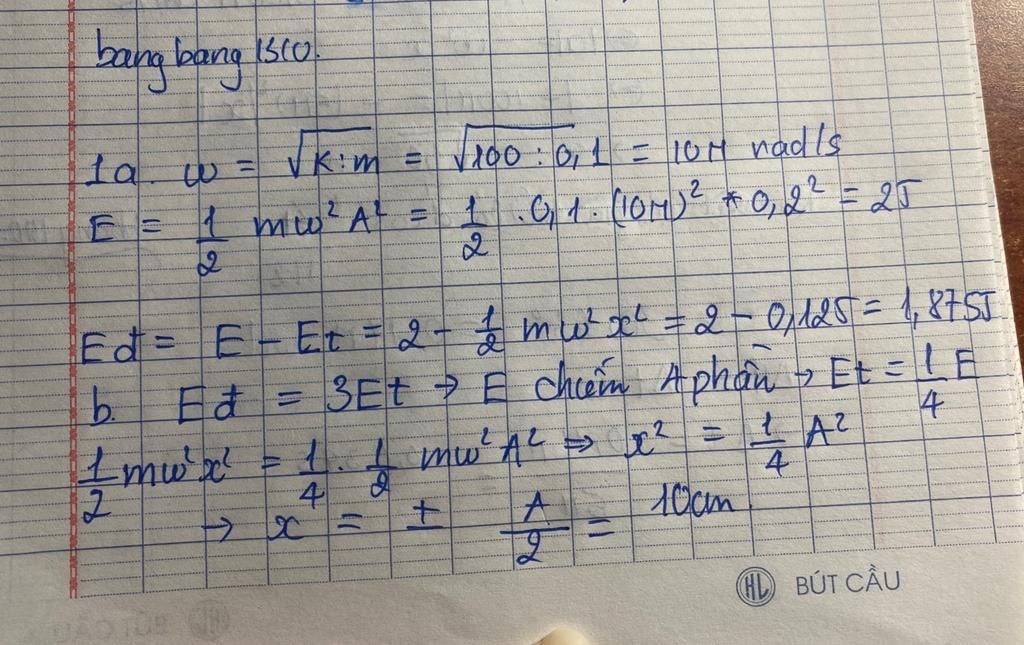 bang bang ISCO.
1a. ω = √k:m = √100:0,1 = 10π rad/s
E = 1/2 mω²A² = 1/2 . 0,1 . (10π)² * 0,2² = 2J
Eđ = E - Et = 2 - 1/2 mω²x² = 2 - 0,125 = 1,875J
b. Eđ = 3Et → E chiếm 4 phần → Et = 1/4 E
1/2 mω²x² = 1/4 . 1/2 mω²A² ⇒ x² = 1/4 A²
→ x = ± A/2 = 10cm
HL BÚT CẦU